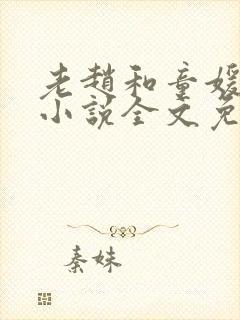 老趙和童媛
小說全文免
秦妹